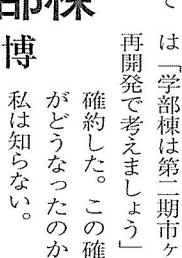 部棟
博
て
は「学部棟は第二市ヶ
再開発で考えましょう」
確約した。この確
がどうなったのか
私は知らない。